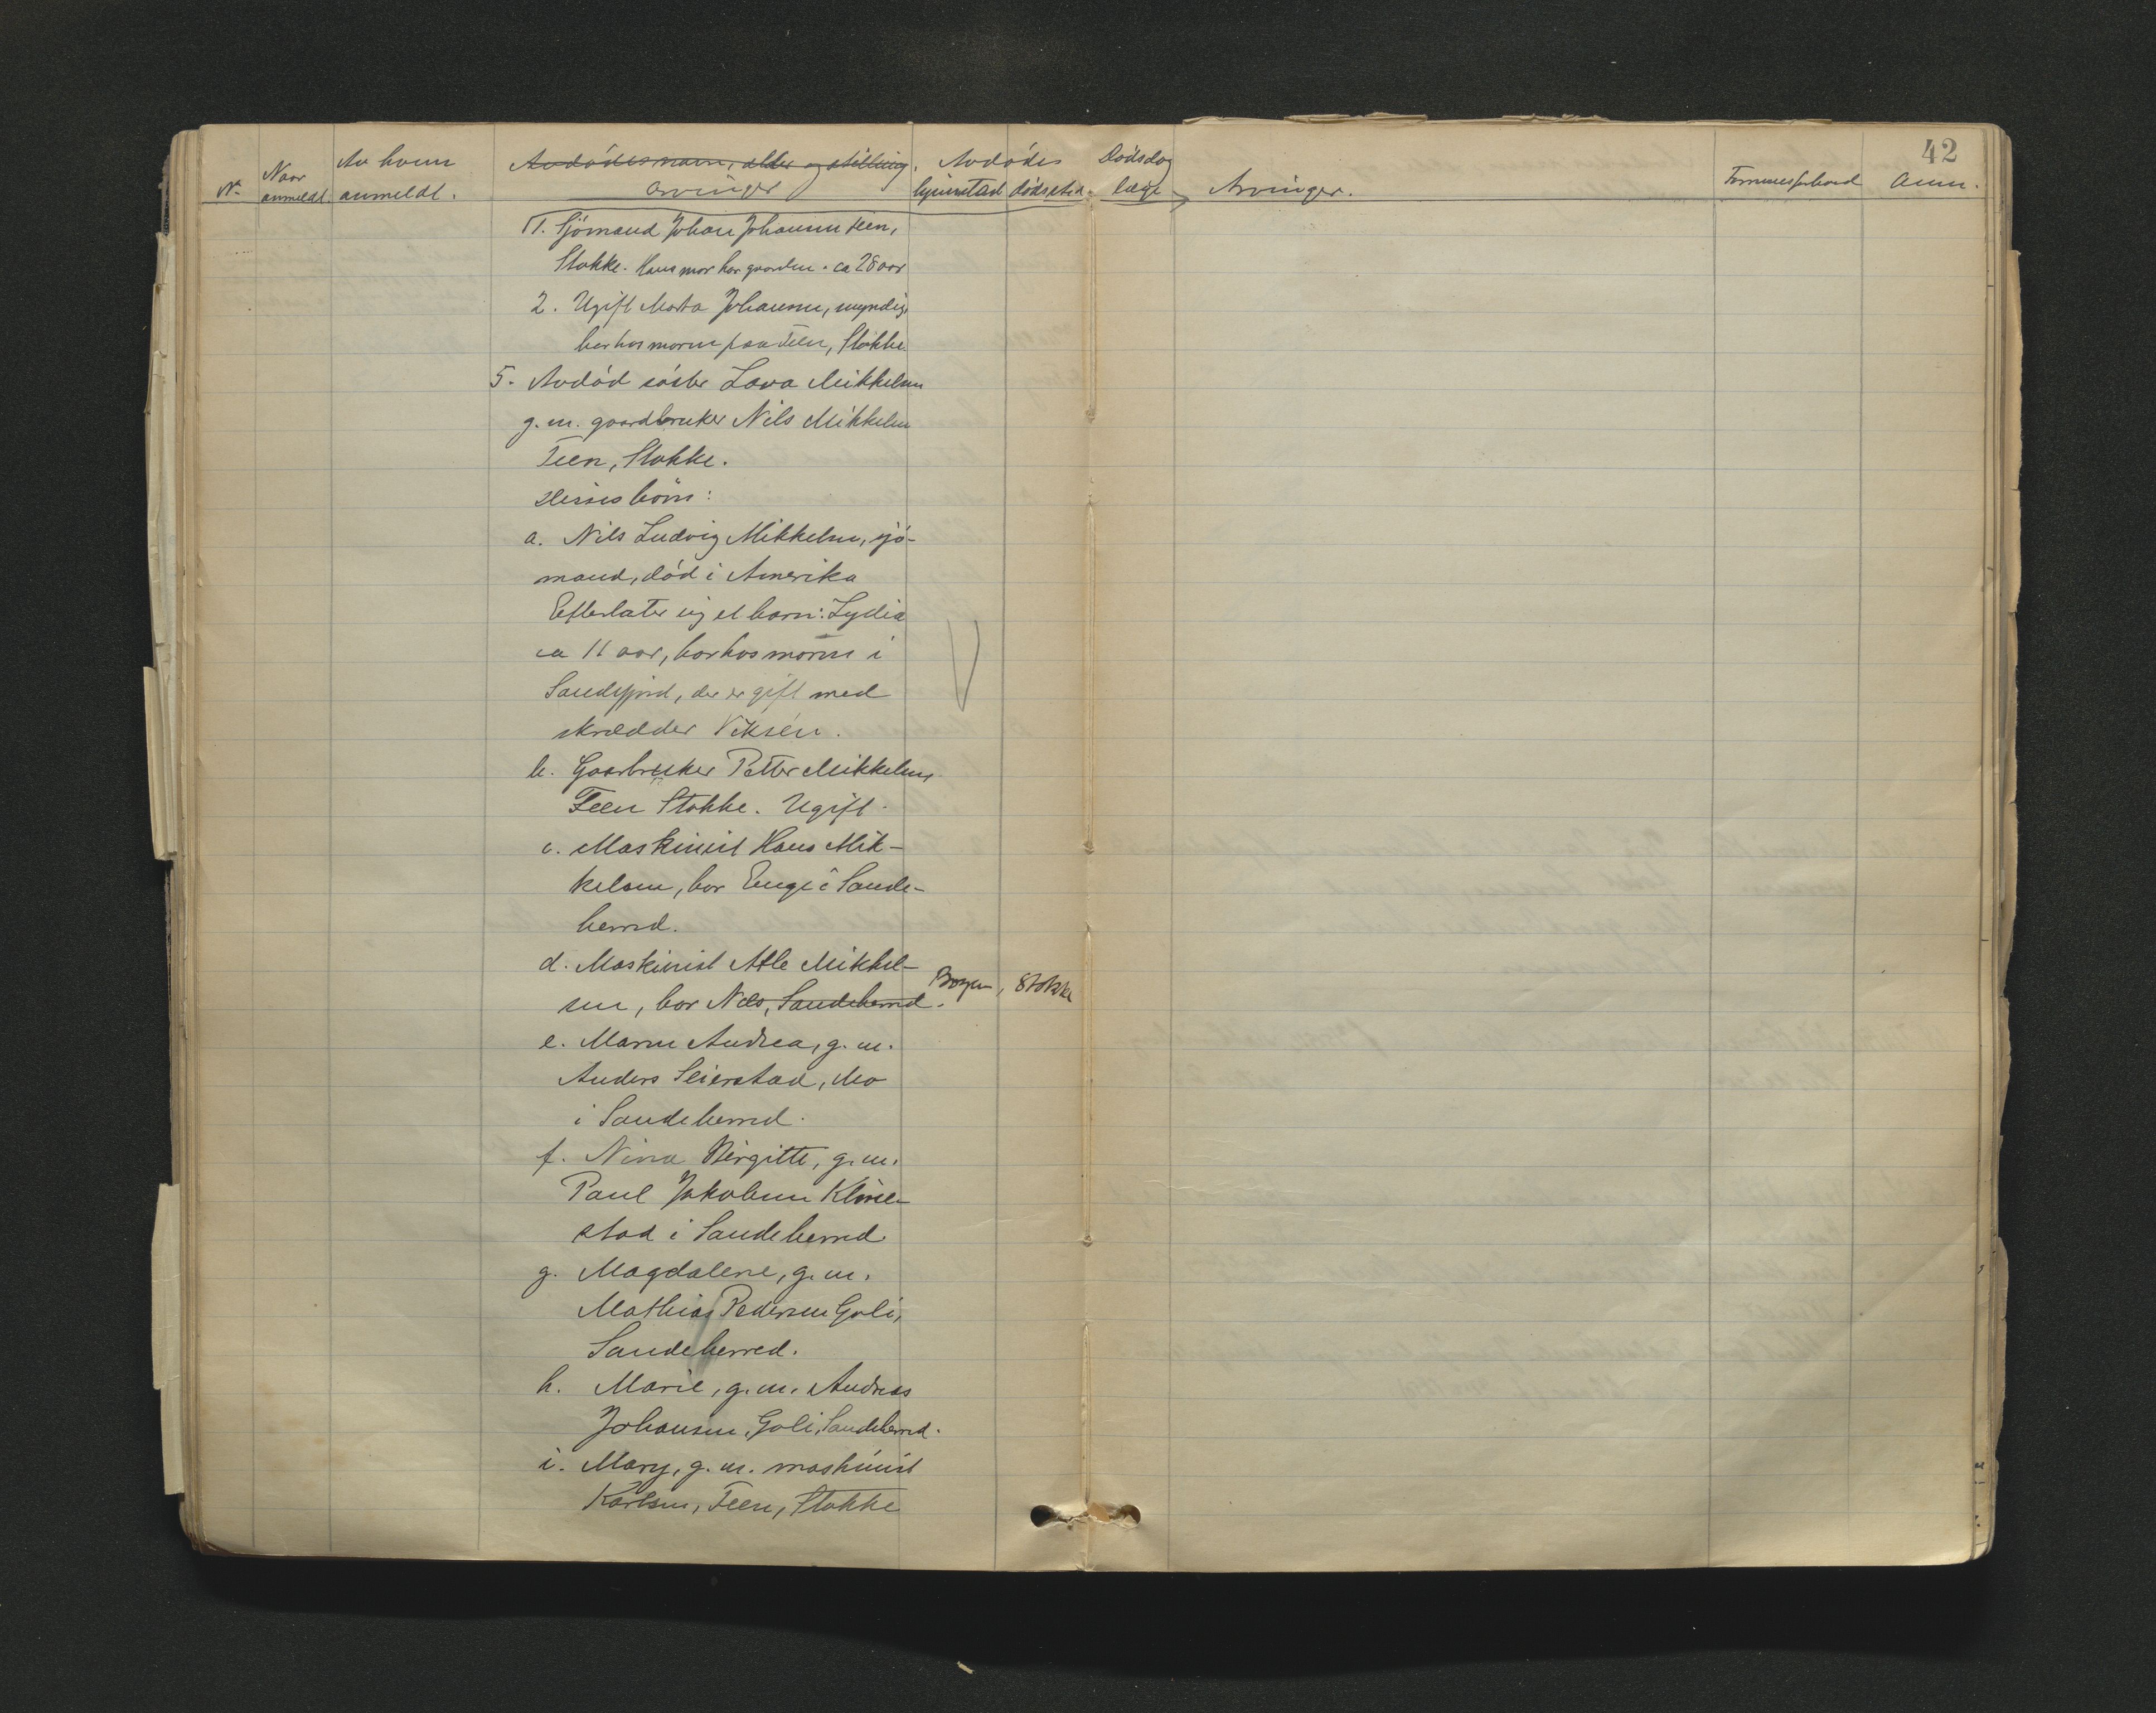 42
No Naar anmeldt. Av hvem anmeldt. Avdödes navn, alder og stilling. Arvinger Avdödes hjemstad dödssted. Dödsdag læge Arvinger. Formuesforhold Anm.
1. Sjömand Johan Johannsen Feen,
Stokke. Hans mor har gaarden. ca 28 aar
2. Ugift Marta Johannsen, myndig,
bor hos moren paa Feen, Stokke.
5. Avdöd söster Lova Mikkelsen
g. m. gaardbruker Nils Mikkelsen
Feen, Stokke.
Disses börn:
a. Nils Ludvig Mikkelsen, sjö-
mand, död i Amerika
Efterlater sig et barn: Lydia
ca 11 aar, bor hos moren i
Sandefjord, der er gift med
skrædder Viksén.
b. Gaarbruker Petter Mikkelsen,
Feen Stokke. Ugift.
c. Maskinist Hans Mik-
kelsen, bor Enge i Sande-
herred.
d. Maskinist Atle Mikkel-
sen, bor Nes, Sandeherred. Bogen, Stokke
e. Maren Andrea, g. m.
Anders Seierstad, Mo
i Sandeherred.
f. Nina Birgitte, g. m.
Paul Jakobsen Klave-
stad i Sandeherred.
g. Magdalene, g. m.
Mathias Pedersen Goli,
Sandeherred.
h. Marie, g. m. Andreas
Johansen, Goli, Sandeherred.
i. Mary, g. m. maskinist
Karlsen, Feen, Stokke